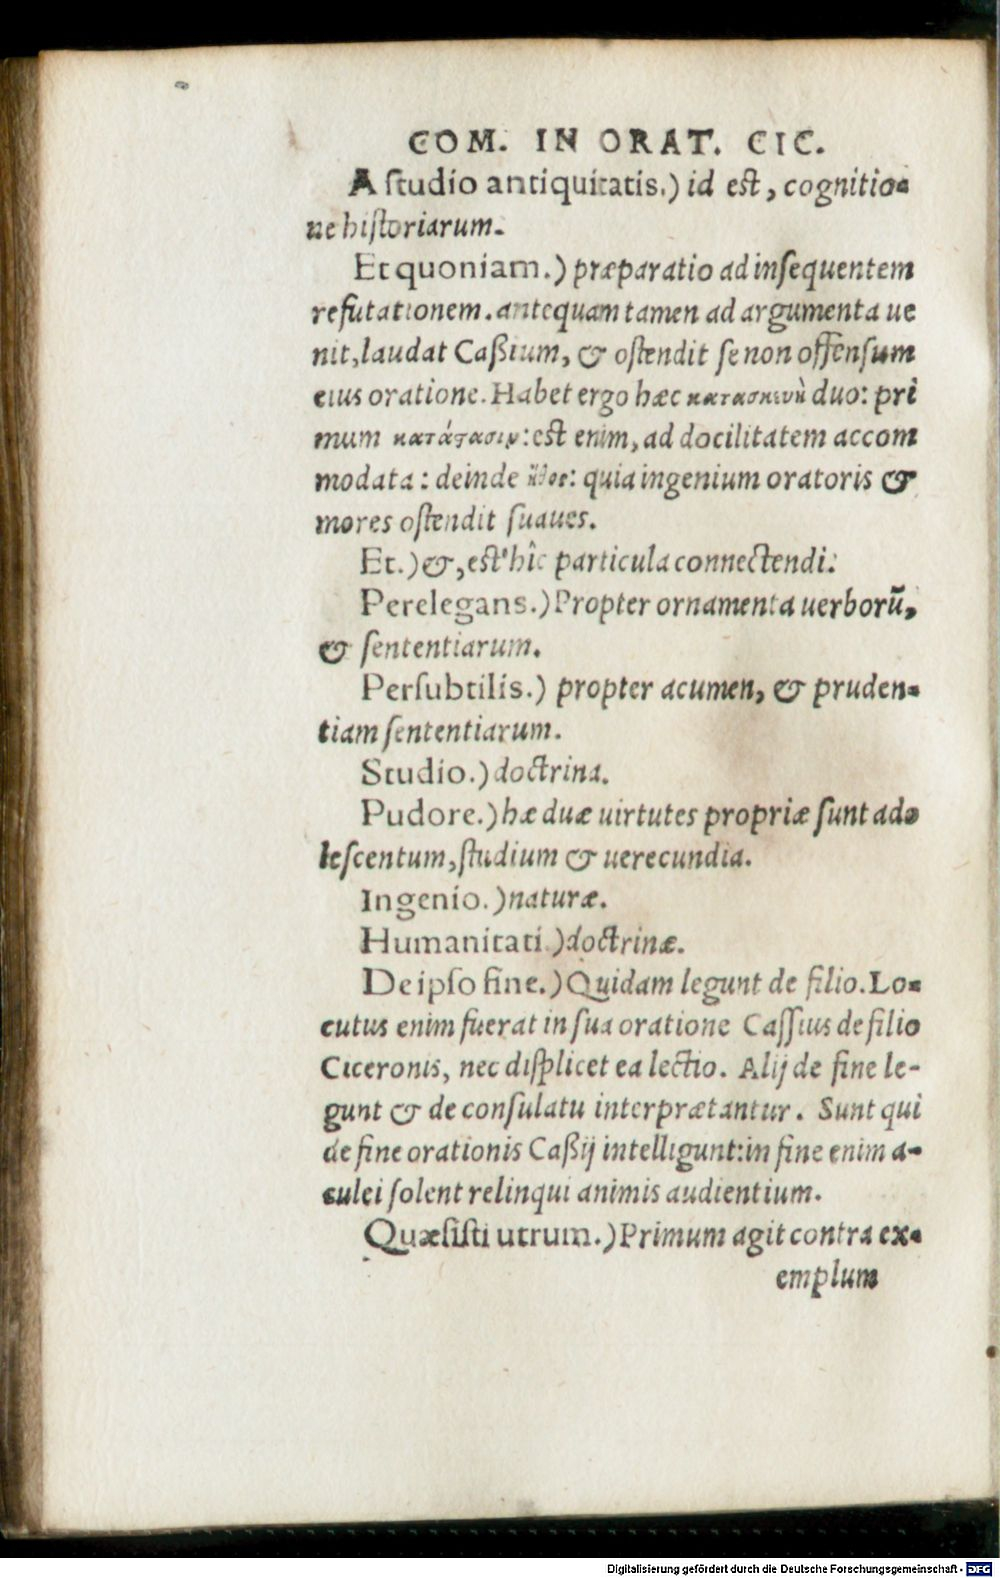 COM. IN ORAT. CIC.
A studio antiquitatis.) id est, cognitio-
ne historiarum.
Et quoniam.) præparatio ad insequentem
refutationem. antequam tamen ad argumenta ue
nit, laudat Caßium, & ostendit se non offensum
eius oratione. Habet ergo hæc κατασκευὴ duo: pri
mum κατάστασιν: est enim, ad docilitatem accom
modata: deinde ἦθος: quia ingenium oratoris &
mores ostendit suaues.
Et.) &, est hîc particula connectendi.
Perelegans.) Propter ornamenta uerborũ,
& sententiarum.
Persubtilis.) propter acumen, & pruden-
tiam sententiarum.
Studio.) doctrina.
Pudore.) hæ duæ uirtutes propriæ sunt ado
lescentum, studium & uerecundia.
Ingenio.) naturæ.
Humanitati.) doctrinæ.
De ipso fine.) Quidam legunt de filio. Lo-
cutus enim fuerat in sua oratione Cassius de filio
Ciceronis, nec displicet ea lectio. Alij de fine le-
gunt & de consulatu interprætantur. Sunt qui
de fine orationis Caßij intelligunt: in fine enim a-
culei solent relinqui animis audientium.
Quæsisti utrum.) Primum agit contra ex-
emplum
Digitalisierung gefördert durch die Deutsche Forschungsgemeinschaft - DFG